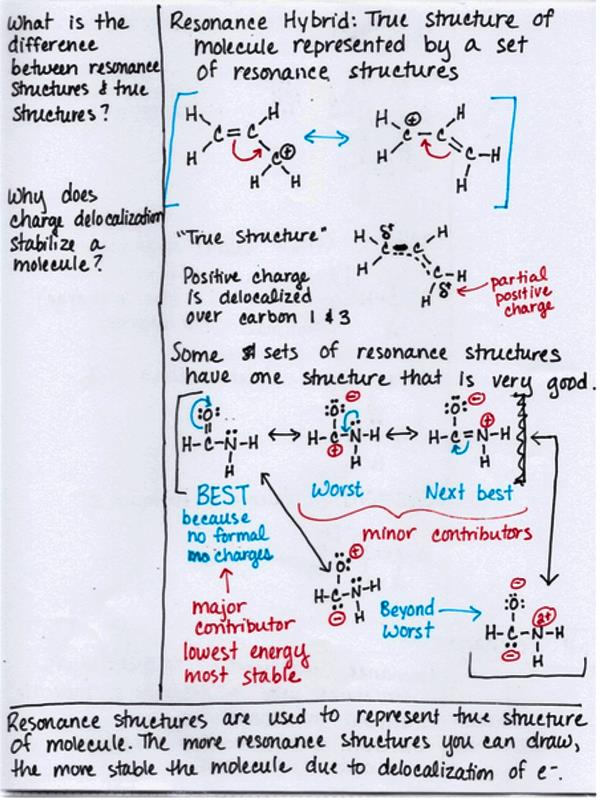 What is the
difference
between resonance
structures & true
structures?
Why does
charge delocalization
stabilize a
molecule?
Resonance Hybrid: True structure of
molecule represented by a set
of resonance structures
H H
C=C
H C⊕
H H
⊕ H
H C-C
H C-H
H
"True Structure"
Positive charge
is delocalized
over carbon 1 & 3
H δ+ H
C C
H C-H
H δ+
partial
positive
charge
Some sets of resonance structures
have one structure that is very good.
:O:
H-C-N-H
H
⊖
:O:
H-C-N-H
⊕ H
⊖
:O: ⊕
H-C=N-H
H
BEST
because
no formal
charges
Worst
Next best
minor contributors
major
contributor
lowest energy
most stable
⊕
:O:
H-C-N-H
⊖ H
Beyond
worst
⊖
:O: 2+
H-C-N-H
⊖ H
Resonance structures are used to represent true structure
of molecule. The more resonance structures you can draw,
the more stable the molecule due to delocalization of e-.